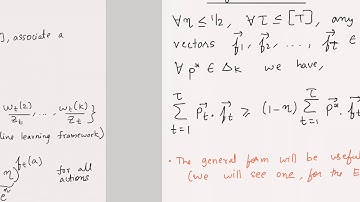 ], associate a
w_t(2)/Z_t, ..., w_t(k)/Z_t }
line learning framework)
f_t(a) for all
actions
∀ η ≤ 1/2, ∀ τ ≤ [T], any
vectors f⃗_1, f⃗_2, ..., f⃗_τ ∈
∀ p* ∈ Δ_k we have,
∑_{t=1}^{τ} p⃗_t · f⃗_t ≥ (1-η) ∑_{t=1}^{τ} p⃗* · f⃗_t
• The general form will be useful
(we will see one, for the E